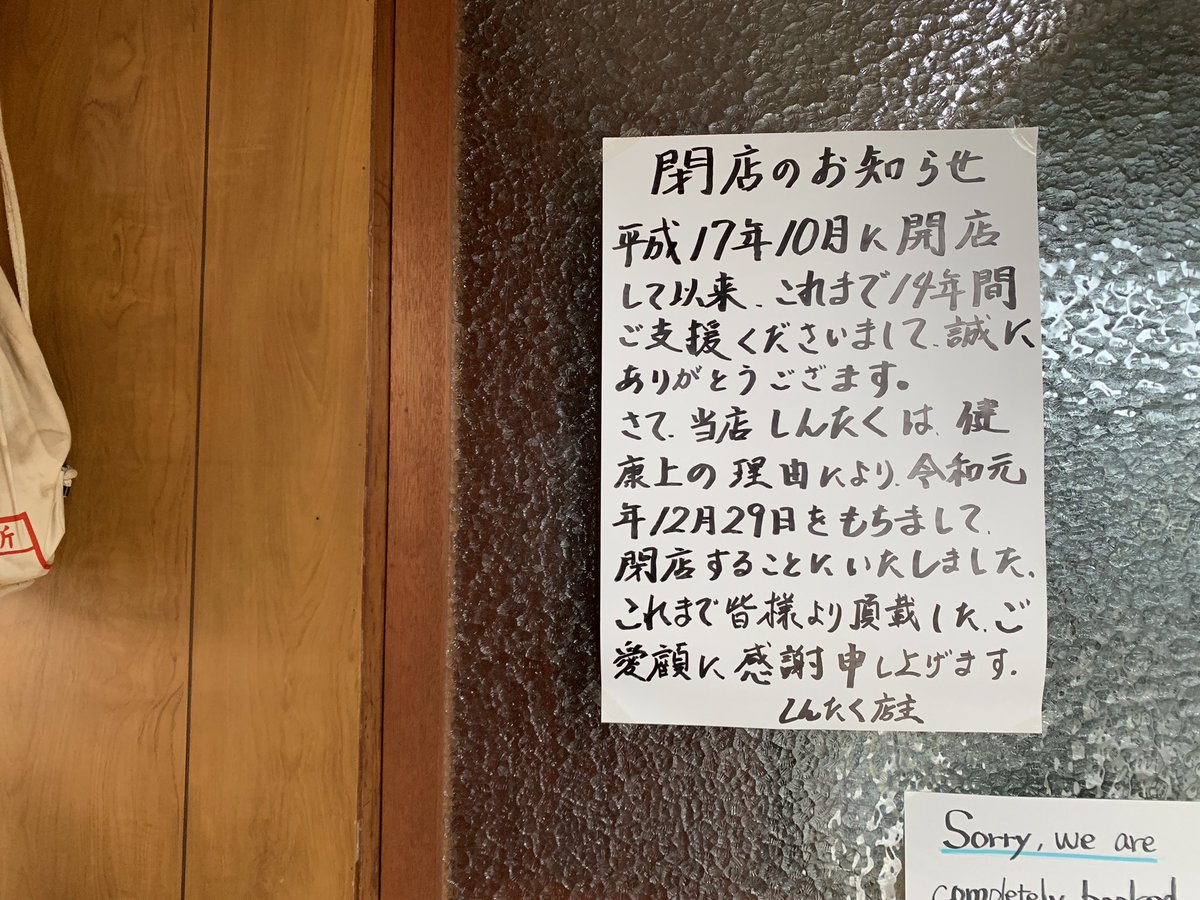 閉店のお知らせ
平成17年10月に開店
して以来、これまで14年間
ご支援くださいまして、誠に
ありがとうございます。
さて、当店しんたくは、健
康上の理由により、令和元
年12月29日をもちまして、
閉店することにいたしました。
これまで皆様より頂載した、ご
愛顧に感謝申し上げます。
しんたく店主
Sorry, we are
completely booked